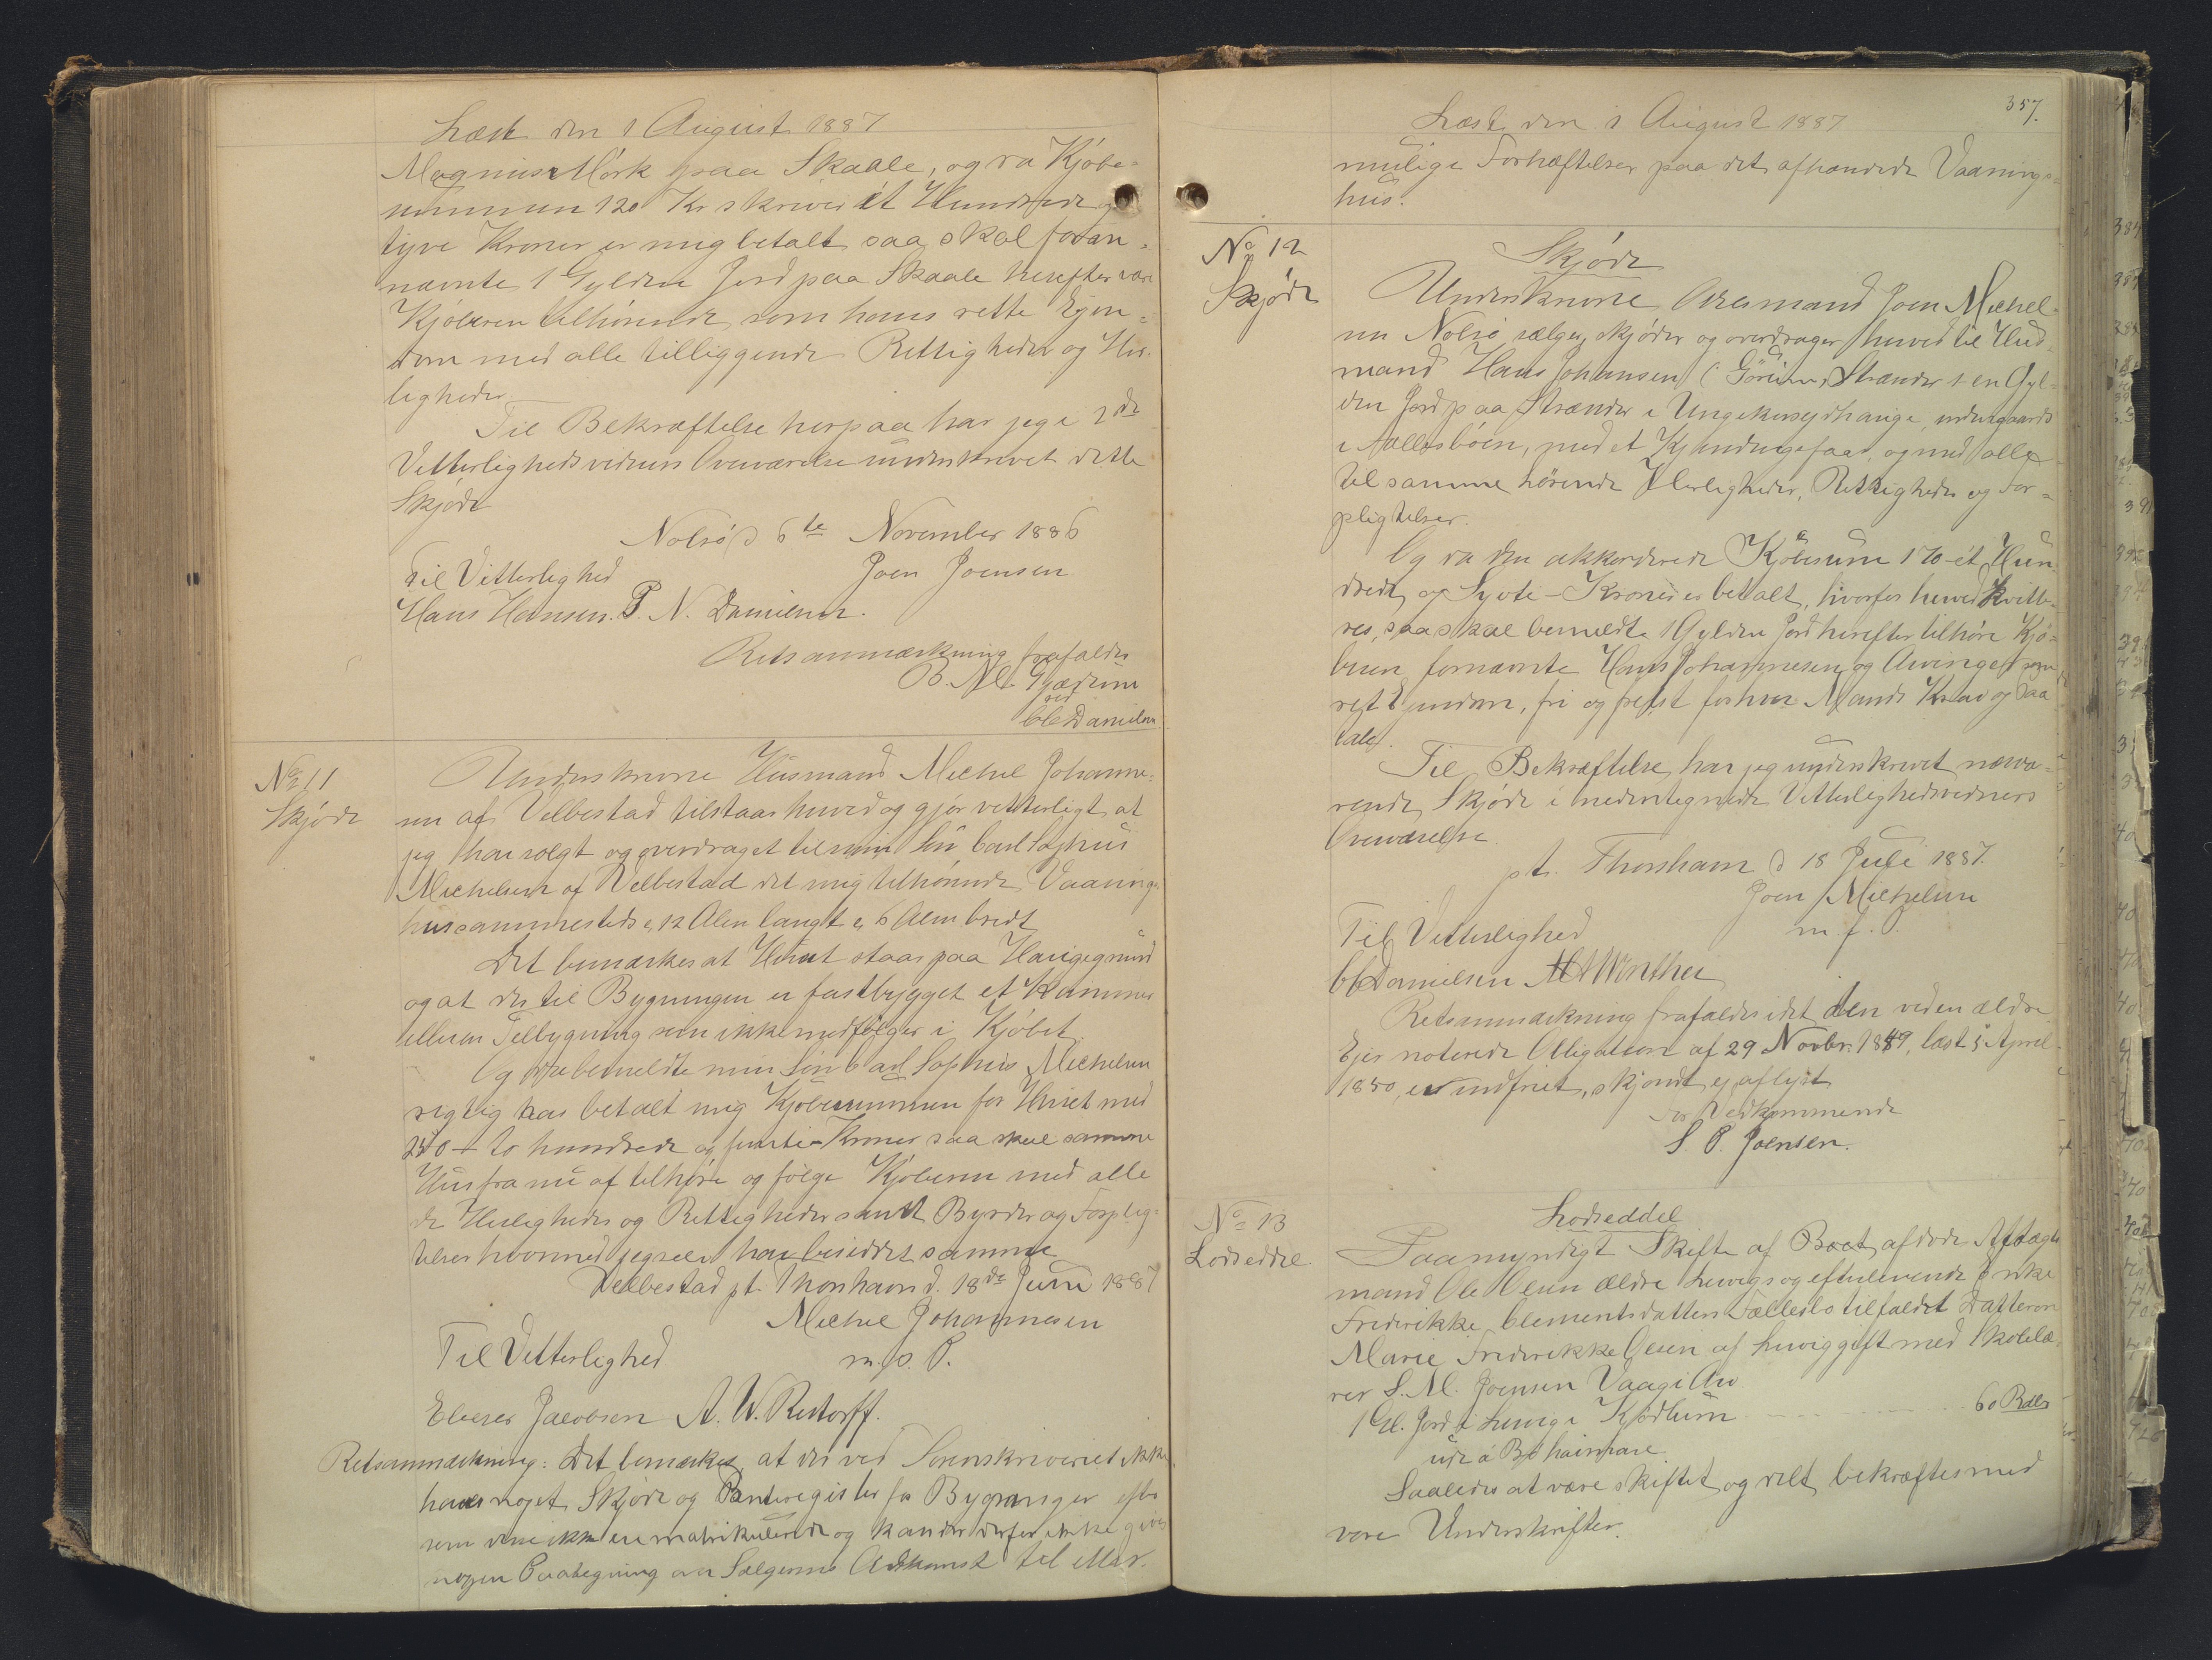 Læst den 1 August 1887
Magnus Mörk paa Skaale, og da Kjöbe-
summen 120 Kr skriver ét Hundrede og
tyve Kroner er mig betalt saa skal foran-
nævnte 1 Gylden Jord paa Skaale herefter være
Kjöberen tilhörende som hans rette Ejen-
dom med alle tilliggende Rettigheder og Her-
ligheder.
Til Bekræftelse herpaa har jeg i 2de
Vitterlighedsvidners Overværelse underskrevet dette
Skjöde
Nolsö d 6te November 1886
Joen Joensen
Til Vitterlighed
Hans Hansen. P. N. Danielsen.
Retsanmærkning frafaldes
ved
Danielsen
No 11
Skjöde
Underskrevne Husmand Michel Johanne-
sen af Velbestad tilstaar herved og gjör vitterligt at
jeg har solgt og overdraget til min Sön Carl Sophus
Michelsen af Velbestad det mig tilhörende Vaanings-
hus sammesteds, 12 Alen langt, 6 Alen bredt
Det bemærkes at Huset staar paa Haugegrund
og at der til Bygningen er fastbygget et Kammer
eller en Tilbygning som ikke medfölger i Kjöbet.
Og da bemeldte min Sön Carl Sophus Michelsen
rigtig har betalt mig Kjöbesummen for Huset med
240 - to hundrede og furti - Kroner saa skal samme
Hus fra nu af tilhöre og fölge Kjöberen med alle
de Herligheder og Rettigheder samt Byrder og Forplig-
telser hvormed jeg selv har besiddet samme
Velbestad pt. Thorshavn d. 18de Juni 1887
Michel Johannesen
m. f. P.
Til Vitterlighed
Elieser Jacobsen A. W. Restorff.
Retsanmærkning: Det bemærkes, at der ved Sorenskriveriet ikke
haves noget Skjöde og Panteregister for Bygninger efter-
som disse ikke ere matrikulerede og kan der derfor ikke gives
nogen Paategning om Sælgerens Adkomst til eller
357.
Læst den 1 August 1887
mulige Forhæftelser paa det afhændede Vaanings-
hus.
No 12
Skjöde
Skjöde
Underskrevne Odelsmand Joen Michel-
sen Nolsö sælger, skjöder og overdrager herved til Hus-
mand Hans Johansen Strænder 1 en Gyl-
den Jord paa Strænder i
med et og med alle
til samme hörende Herligheder, Rettigheder og For-
pligtelser.
Og da den akkorderede Köbesum 170 - ét Hun-
drede og Syvti - Kroner er betalt, hvorfor herved kvitte-
res, saa skal bemeldte 1 Gylden Jord herefter tilhöre Kjö-
beren fornævnte Hans Johannesen og Arvinger som
ret Ejendom, fri og frelst for hver Mands Krav og Paa-
tale.
Til Bekræftelse har jeg underskrevet nærvæ-
rende Skjöde i nedentegnede Vitterlighedsvidners
Overværelse.
pt. Thorshavn d 18 Juli 1887.
Joen Michelsen
m. f. P.
Til Vitterlighed
Danielsen Winther
Retsanmærkning frafaldes idet den ved en ældre
Ejer noterede Obligation af 29 Novbr. 1849, læst 5 April
1850, er indfriet, skjöndt ej aflyst
For Vedkommende
S. P. Joensen.
No 13
Lodseddel.
Lodseddel
Paa myndigt Skifte af Boet, afdöde Aftægts-
mand Ole Olesen ældre og efterlevende Enke
Frederikke Clementsdatters Fællesbo tilfaldet Datteren
Marie Frederikke Olesen af gift med Skolelæ-
rer S. M. Joensen Vaag
1 Gl. Jord i 60 Rdlr
Saaledes at være skiftet og delt bekræftes med
vore Underskrifter.